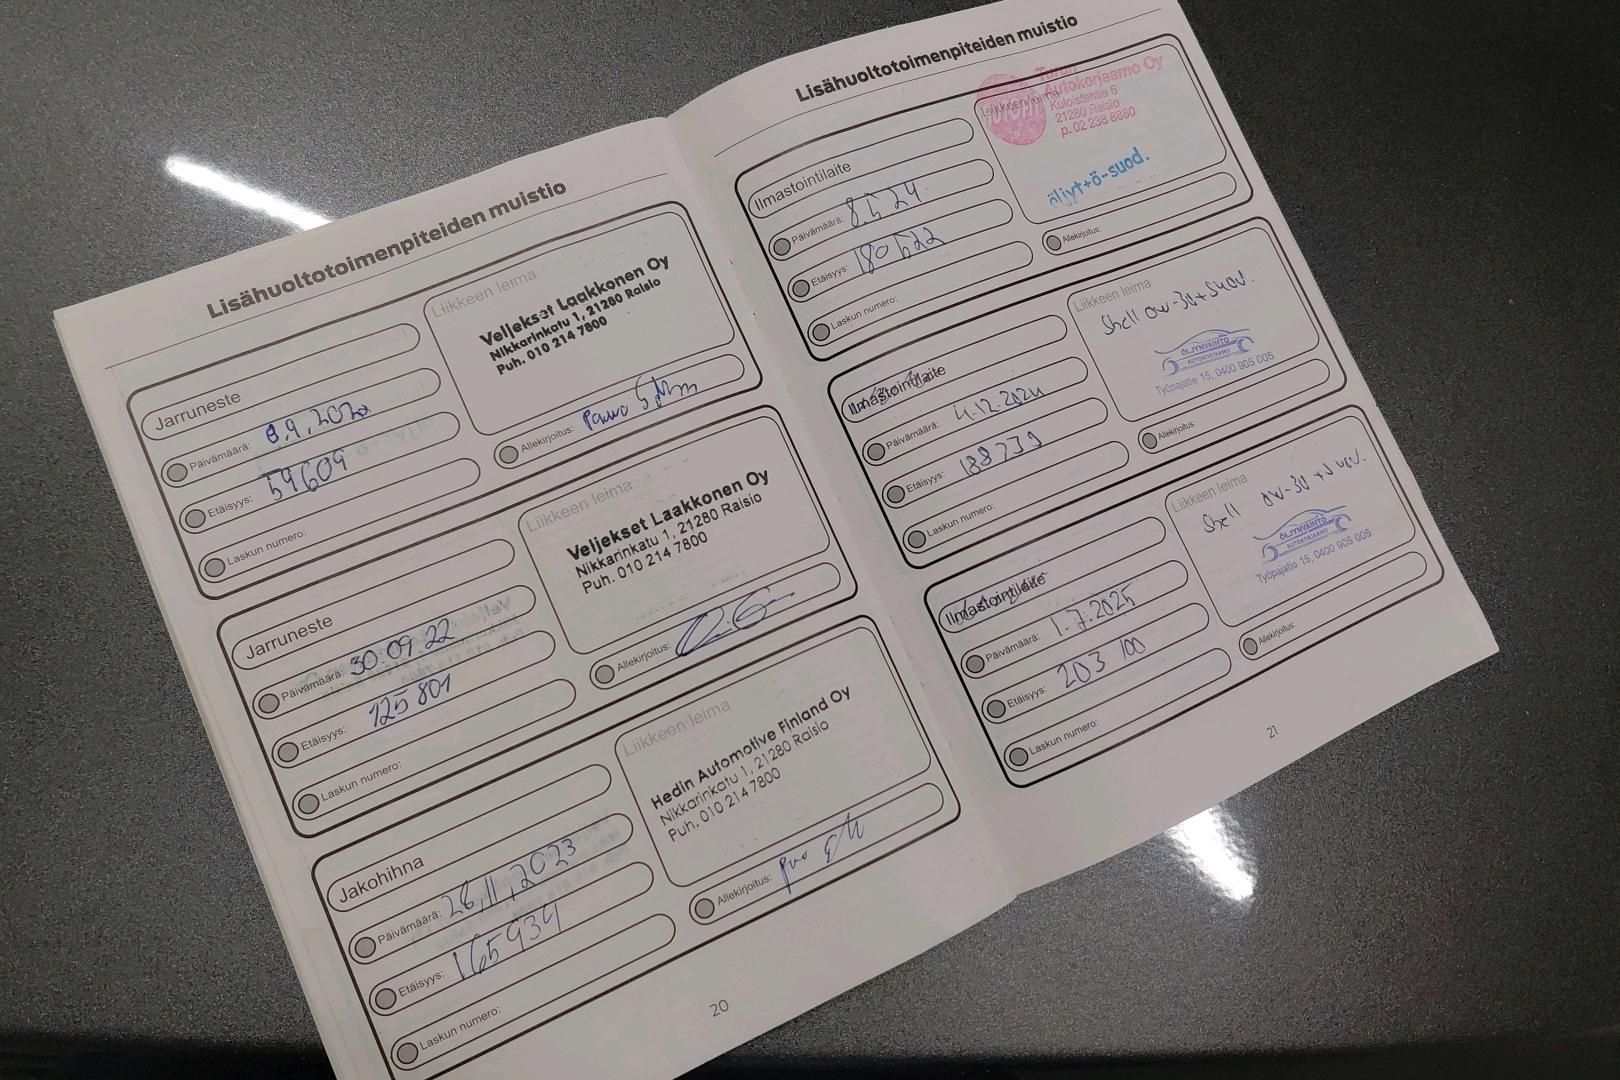 Lisähuoltotoimenpiteiden muistio
Jarruneste
Päivämäärä: 8.9.2020
Etäisyys: 59609
Laskun numero:
Liikkeen leima
Veljekset Laakkonen Oy
Nikkarinkatu 1, 21280 Raisio
Puh. 010 214 7800
Allekirjoitus:
Jarruneste
Päivämäärä: 30.09.22
Etäisyys: 125 801
Laskun numero:
Liikkeen leima
Veljekset Laakkonen Oy
Nikkarinkatu 1, 21280 Raisio
Puh. 010 214 7800
Allekirjoitus:
Jakohihna
Päivämäärä: 28.11.2023
Etäisyys: 165934
Laskun numero:
Liikkeen leima
Hedin Automotive Finland Oy
Nikkarinkatu 1, 21280 Raisio
Puh. 010 214 7800
Allekirjoitus:
20
Lisähuoltotoimenpiteiden muistio
Ilmastointilaite
Päivämäärä: 8.5.24
Etäisyys: 180522
Laskun numero:
Liikkeen leima
AUTOFIT
Turun
Autokorjaamo Oy
Kuloistentie 6
21280 Raisio
p. 02 238 8880
öljyt+ö-suod.
Allekirjoitus:
Ilmastointilaite
Päivämäärä: 4.12.2024
Etäisyys: 188739
Laskun numero:
Liikkeen leima
Shell 0w-30+suod.
ÖLJYNVAIHTO
AUTOKORJAAMO
Työpajatie 15, 0400 905 005
Allekirjoitus:
Ilmastointilaite
Päivämäärä: 1.7.2025
Etäisyys: 203 100
Laskun numero:
Liikkeen leima
Shell 0w-30 +suod.
ÖLJYNVAIHTO
AUTOKORJAAMO
Työpajatie 15, 0400 905 005
Allekirjoitus:
21